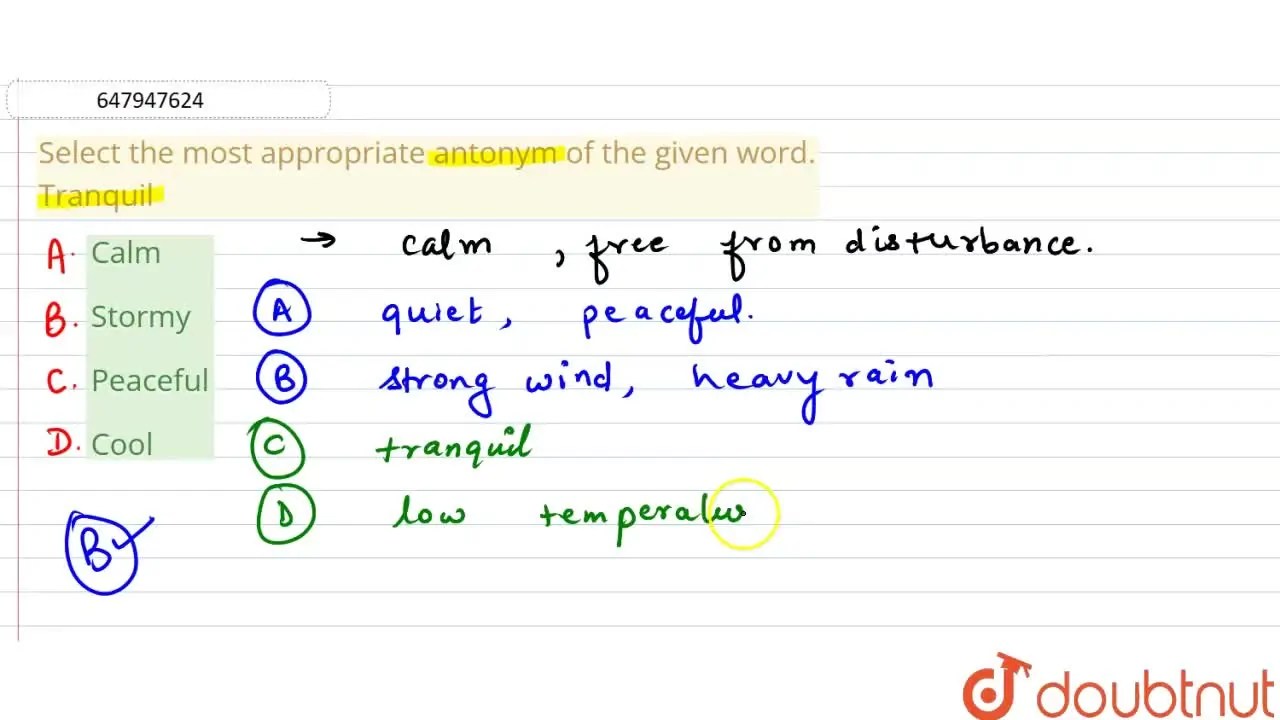 647947624
Select the most appropriate antonym of the given word.
Tranquil
A. Calm → calm, free from disturbance.
B. Stormy A quiet, peaceful.
C. Peaceful B strong wind, heavy rain
D. Cool C tranquil
D low
B✓
doubtnut